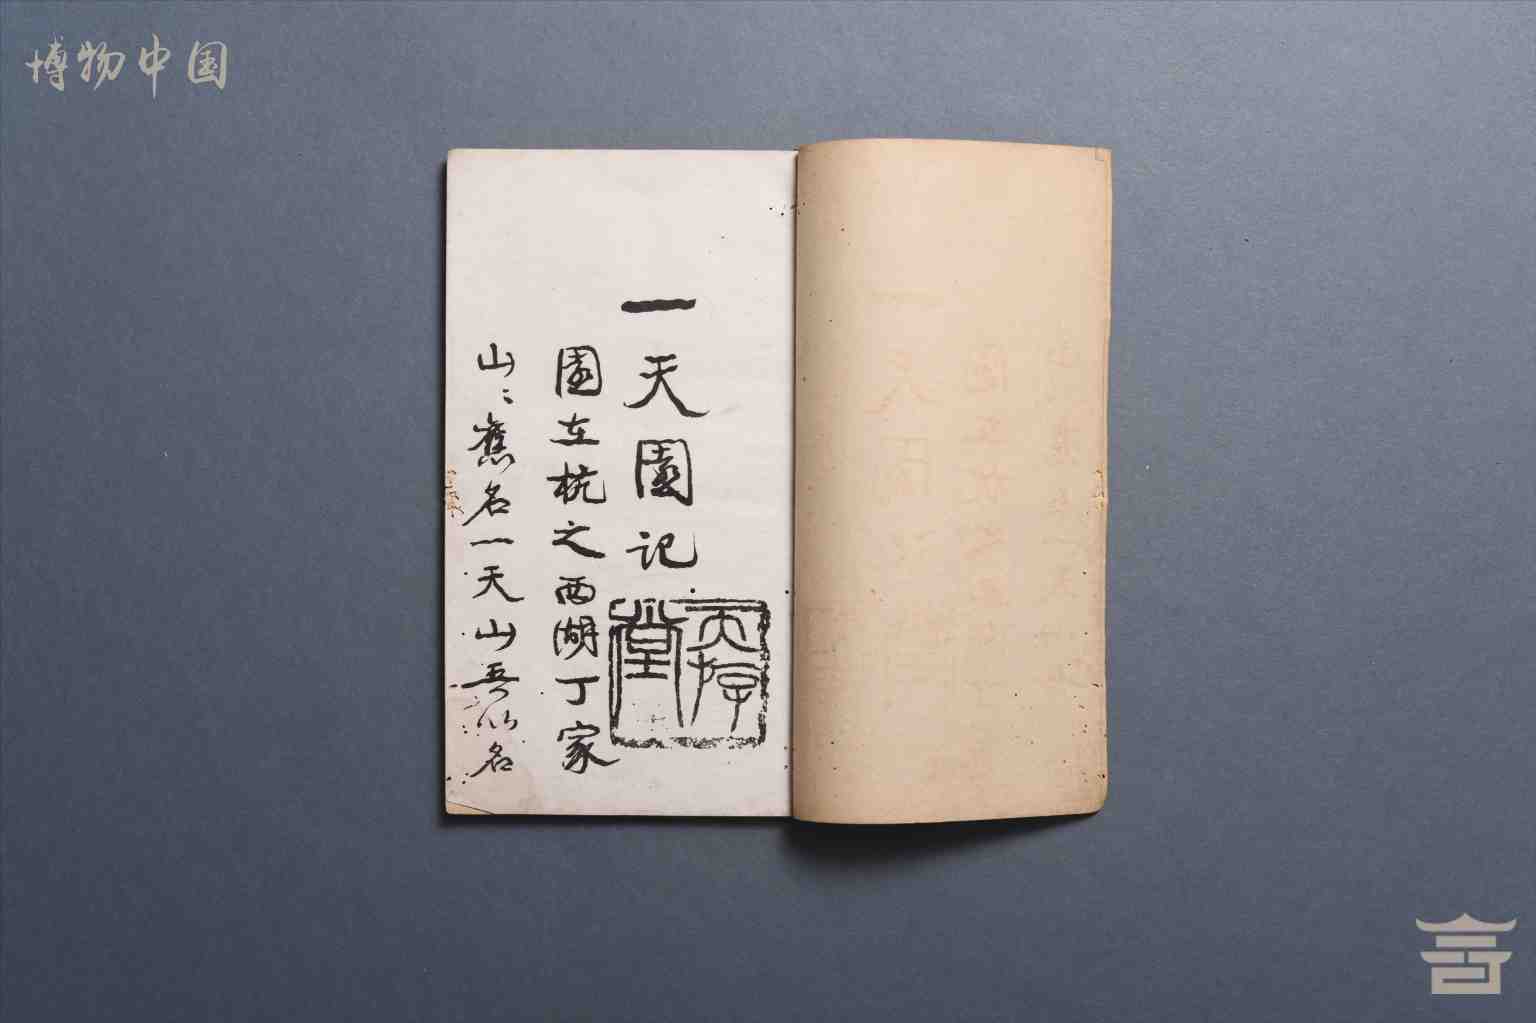 博物中国
一天園記
園在杭之西湖丁家
山〻舊名一天山吾以名
天存
堂